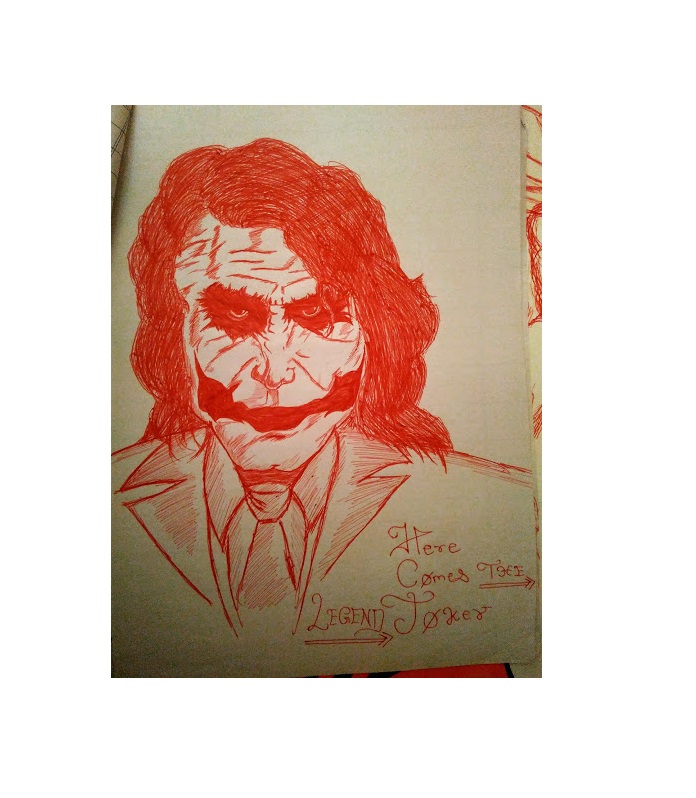 Here
Comes THE
LEGEND Joker